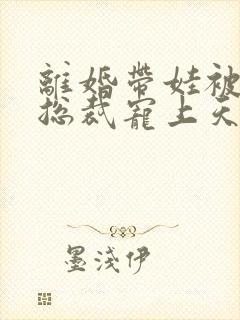 離婚帶娃被
總裁寵上天
墨淺伊